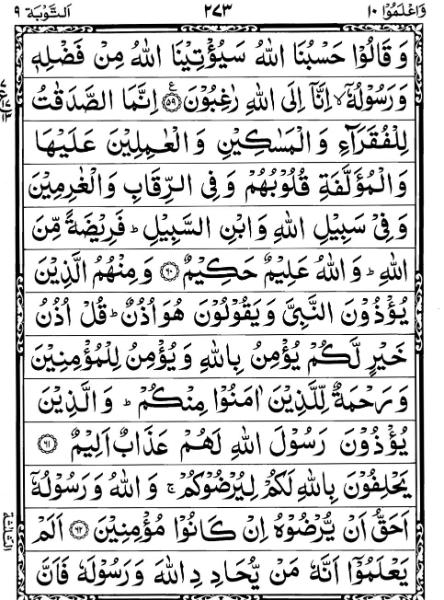 وَاعْلَمُوْٓا ١٠ ٢٧٣ اَلتَّوْبَة ٩
وَ قَالُوْا حَسْبُنَا اللهُ سَيُؤْتِيْنَا اللهُ مِنْ فَضْلِهٖ
وَ رَسُوْلُهٗۤ ۙ اِنَّاۤ اِلَى اللهِ رٰغِبُوْنَ ﴿٥٩﴾ ع اِنَّمَا الصَّدَقٰتُ
لِلْفُقَرَآءِ وَ الْمَسٰكِيْنِ وَ الْعٰمِلِيْنَ عَلَيْهَا
وَ الْمُؤَلَّفَةِ قُلُوْبُهُمْ وَ فِي الرِّقَابِ وَ الْغٰرِمِيْنَ
وَ فِيْ سَبِيْلِ اللهِ وَ ابْنِ السَّبِيْلِ ؕ فَرِيْضَةً مِّنَ
اللهِ ؕ وَ اللهُ عَلِيْمٌ حَكِيْمٌ ﴿٦٠﴾ وَ مِنْهُمُ الَّذِيْنَ
يُؤْذُوْنَ النَّبِيَّ وَ يَقُوْلُوْنَ هُوَ اُذُنٌ ؕ قُلْ اُذُنُ
خَيْرٍ لَّكُمْ يُؤْمِنُ بِاللهِ وَ يُؤْمِنُ لِلْمُؤْمِنِيْنَ
وَ رَحْمَةٌ لِّلَّذِيْنَ اٰمَنُوْا مِنْكُمْ ؕ وَ الَّذِيْنَ
يُؤْذُوْنَ رَسُوْلَ اللهِ لَهُمْ عَذَابٌ اَلِيْمٌ ﴿٦١﴾
يَحْلِفُوْنَ بِاللهِ لَكُمْ لِيُرْضُوْكُمْ ۚ وَ اللهُ وَ رَسُوْلُهٗۤ
اَحَقُّ اَنْ يُّرْضُوْهُ اِنْ كَانُوْا مُؤْمِنِيْنَ ﴿٦٢﴾ اَلَمْ
يَعْلَمُوْۤا اَنَّهٗ مَنْ يُّحَادِدِ اللهَ وَ رَسُوْلَهٗ فَاَنَّ